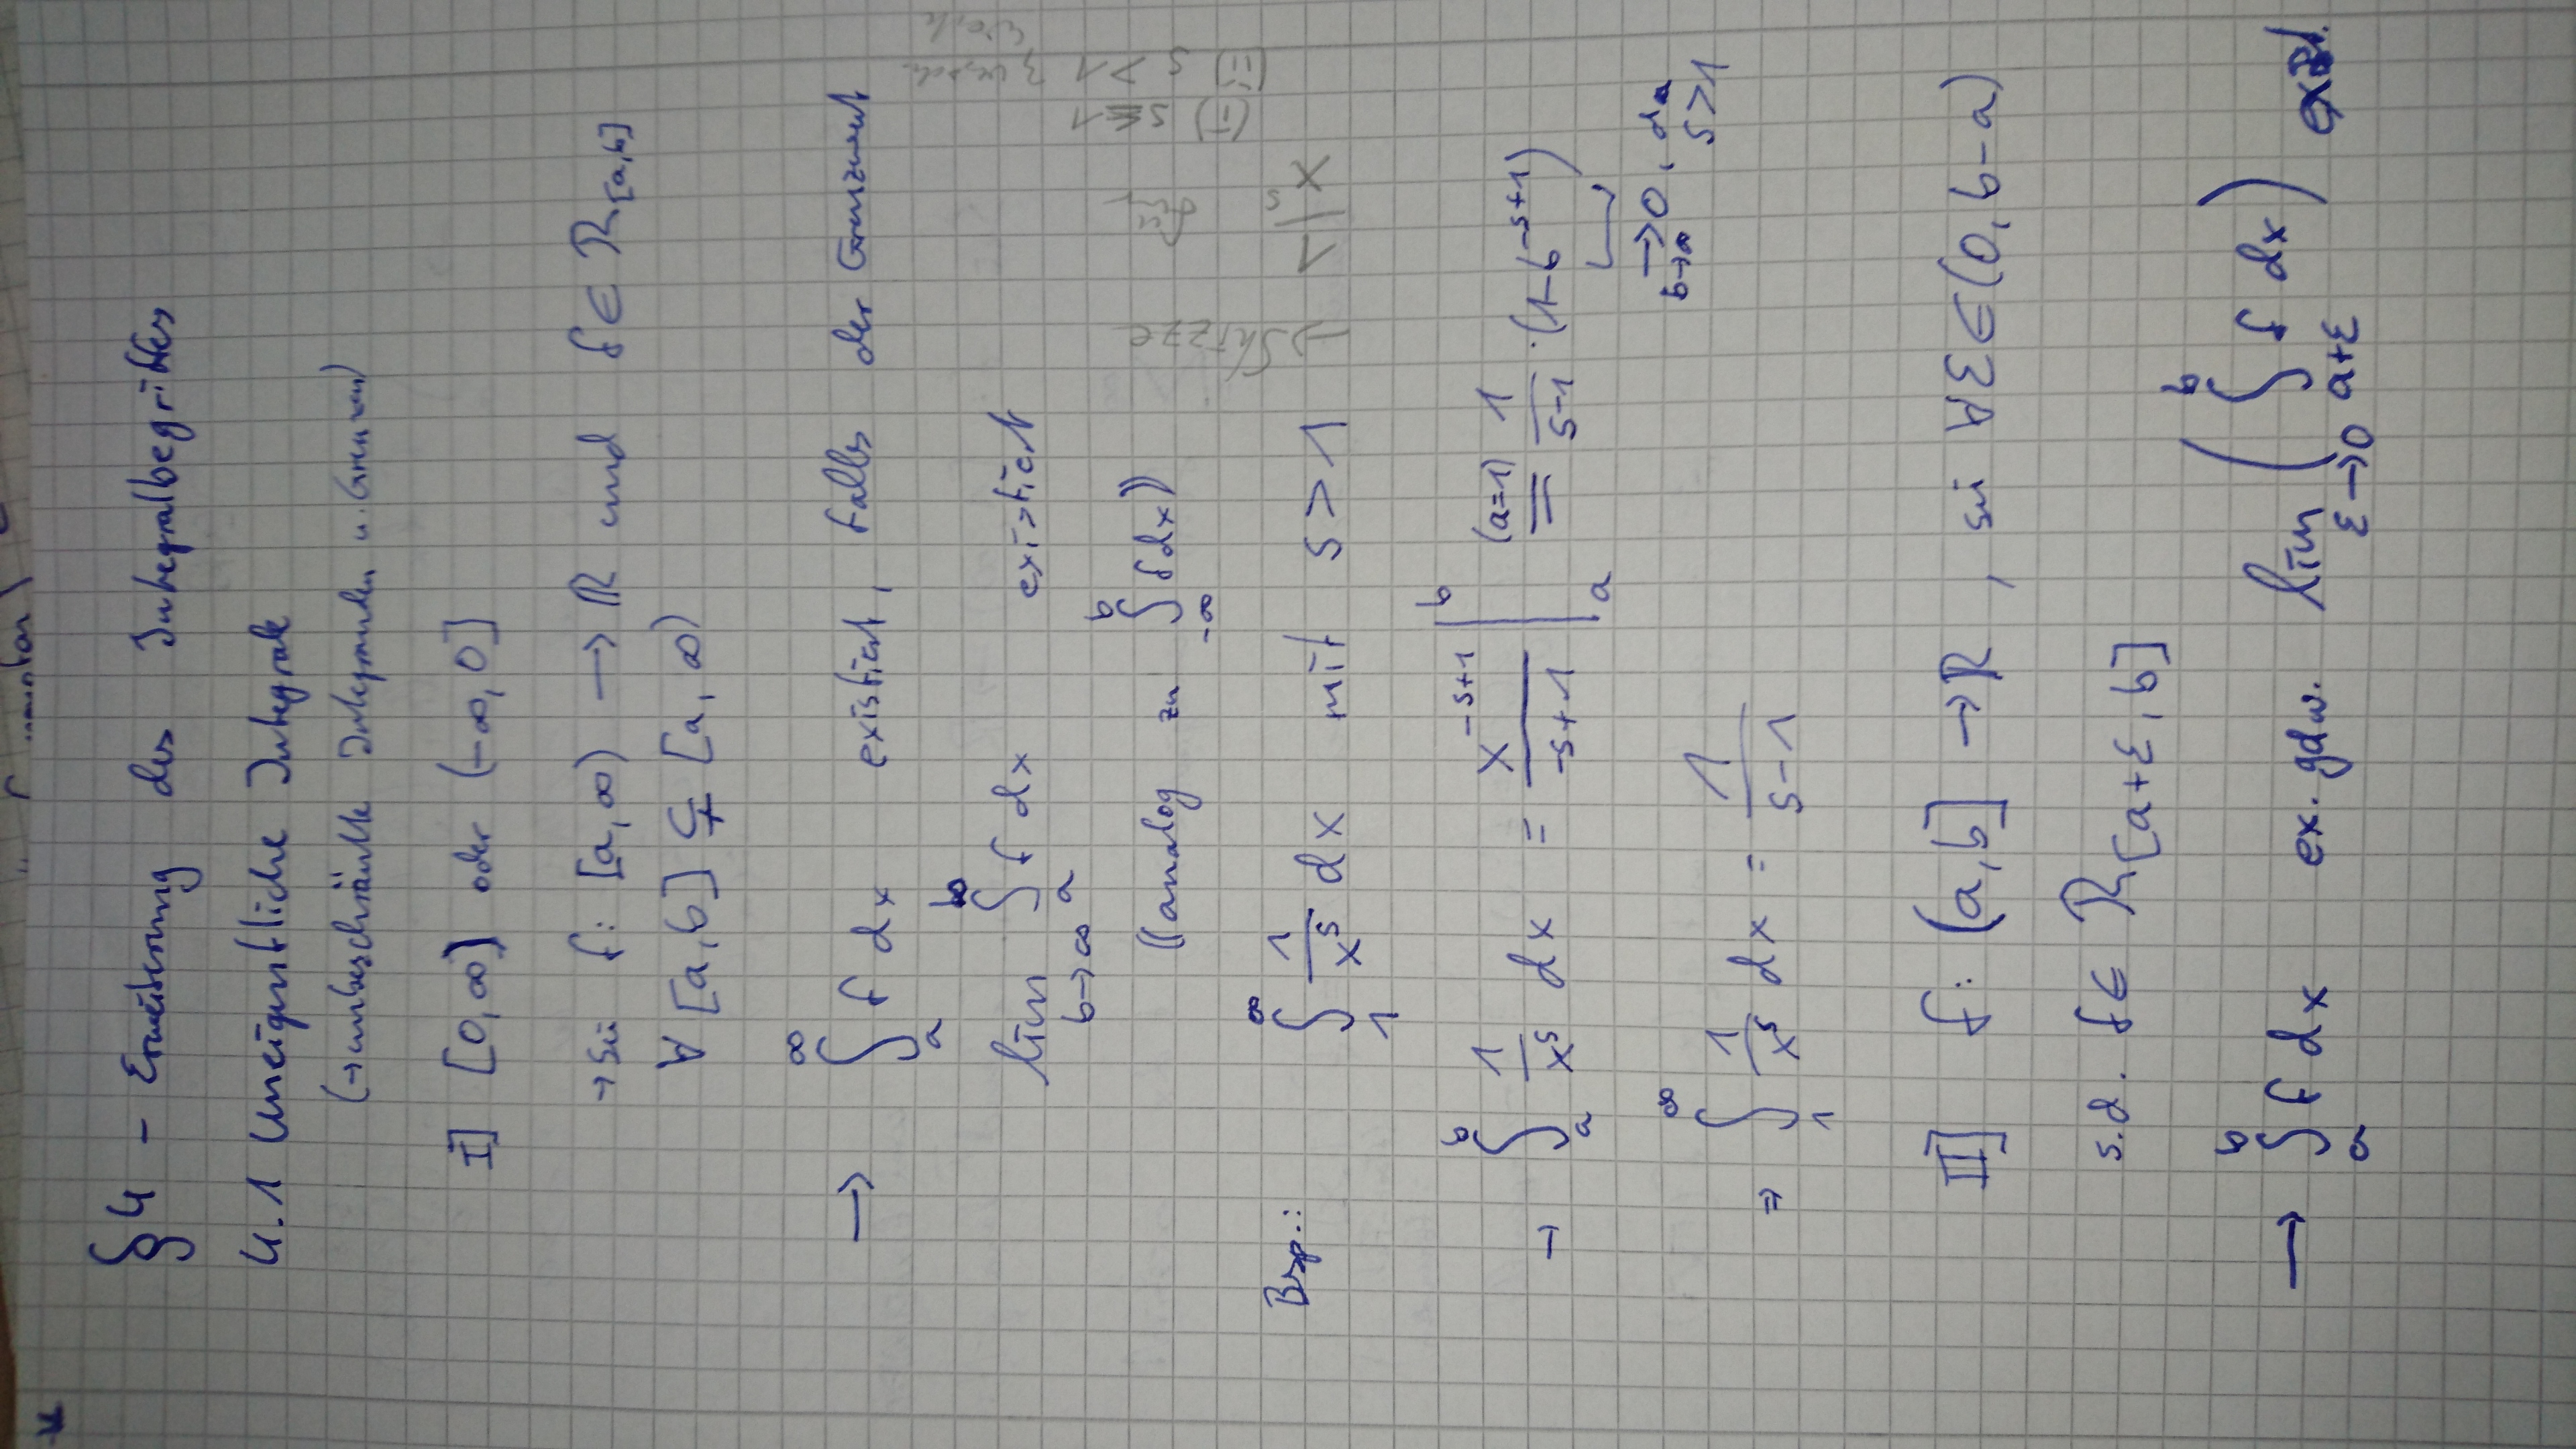 §4 - Erweiterung des Integralbegriffes
4.1 Uneigentliche Integrale
(→unbeschränkte Integranden u. Grenzen)
I] [0,∞) oder (-∞,0]
→ sei f: [a,∞) → ℝ und f ∈ R_[a,b]
∀ [a,b] ⊊ [a,∞)
→ ∫_a^∞ f dx existiert, falls der Grenzwert
lim_{b→∞} ∫_a^b f dx existiert
((analog zu ∫_{-∞}^b f dx))
Bsp.: ∫_1^∞ 1/x^s dx mit s > 1
→ ∫_a^b 1/x^s dx = x^{-s+1}/(-s+1) |_a^b =^{(a=1)} 1/(s-1) · (1-b^{-s+1})
→0, da
b→∞
s>1
⇒ ∫_1^∞ 1/x^s dx = 1/(s-1)
II] f: (a,b] → ℝ, sei ∀ε∈(0,b-a)
s.d. f ∈ R_[a+ε,b]
→ ∫_a^b f dx ex. gdw. lim_{ε→0} ( ∫_{a+ε}^b f dx ) exist.
→ Skizze
1/x^s für
(i) s≤1
(ii) s>1